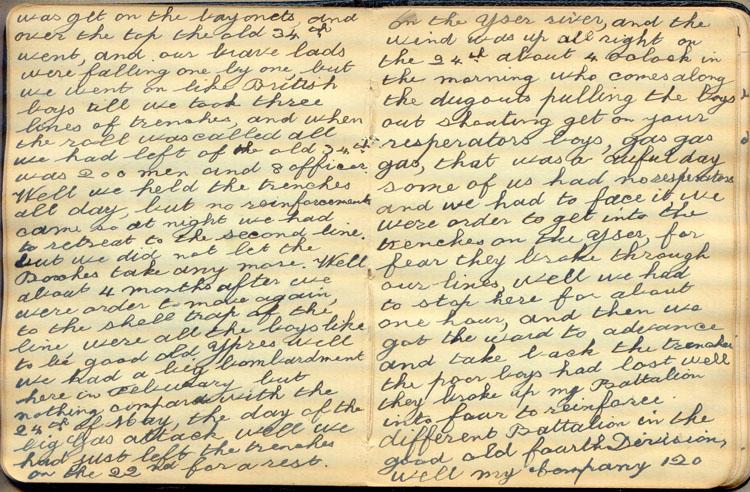 was get on the bayonets, and
over the top the old 34th
went, and our brave lads
were falling one by one but
we went on like British
boys till we took three
lines of trenches, and when
the roll was called all
we had left of the old 34th
was 200 men and 8 officer.
Well we held the trenches
all day, but no reinforcements
came so at night we had
to retreat to the second line.
but we did not let the
Boches take any more. Well
about 4 months after we
were order to move again,
to the shell trap of the
line were all the boys like
to be good old Ypres well
we had a big bombardment
here in February but
nothing compare with the
24th of May, the day of the
big Gas attack well we
had just left the trenches
on the 22nd for a rest.
on the Yser river, and the
wind was up all right on
the 24th about 4 oclock in
the morning who comes along
the dugouts pulling the boys
out shouting get on your
resperators boys, gas gas
gas, that was a awful day
some of us had no resperators
and we had to face it we
were order to get into the
trenches on the Yser, for
fear they broke through
our lines, well we had
to stop here for about
one hour, and then we
got the word to advance
and take back the trenches
the poor boys had lost well
they broke up my Battalion
into four to reinforce
different Battalion in the
good old fourth Division,
well my Company 120